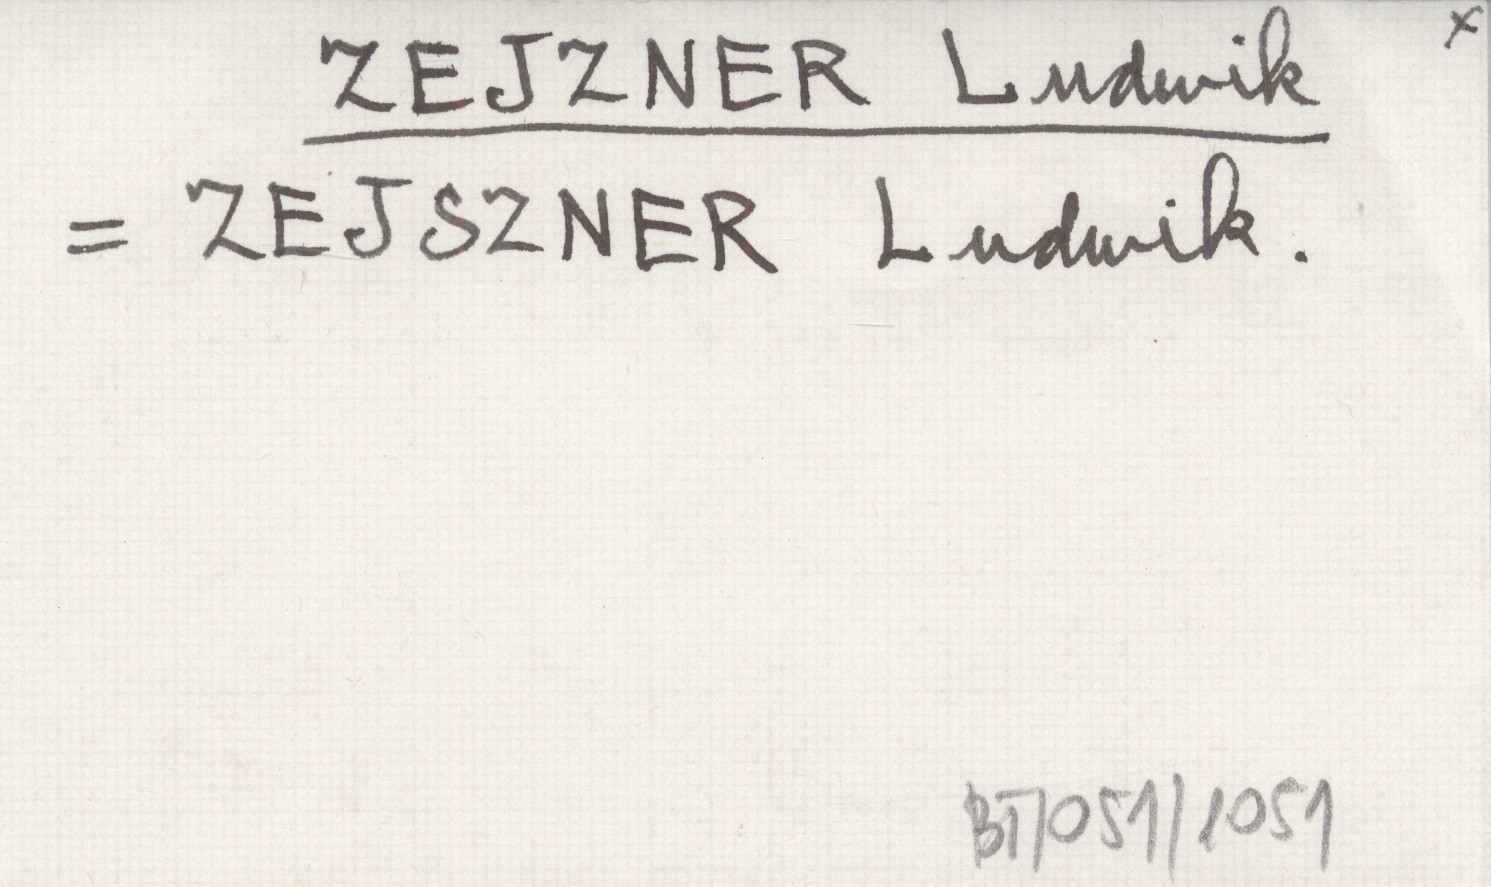 x
ZEJZNER Ludwik
= ZEJSZNER Ludwik.
BT/051/1051